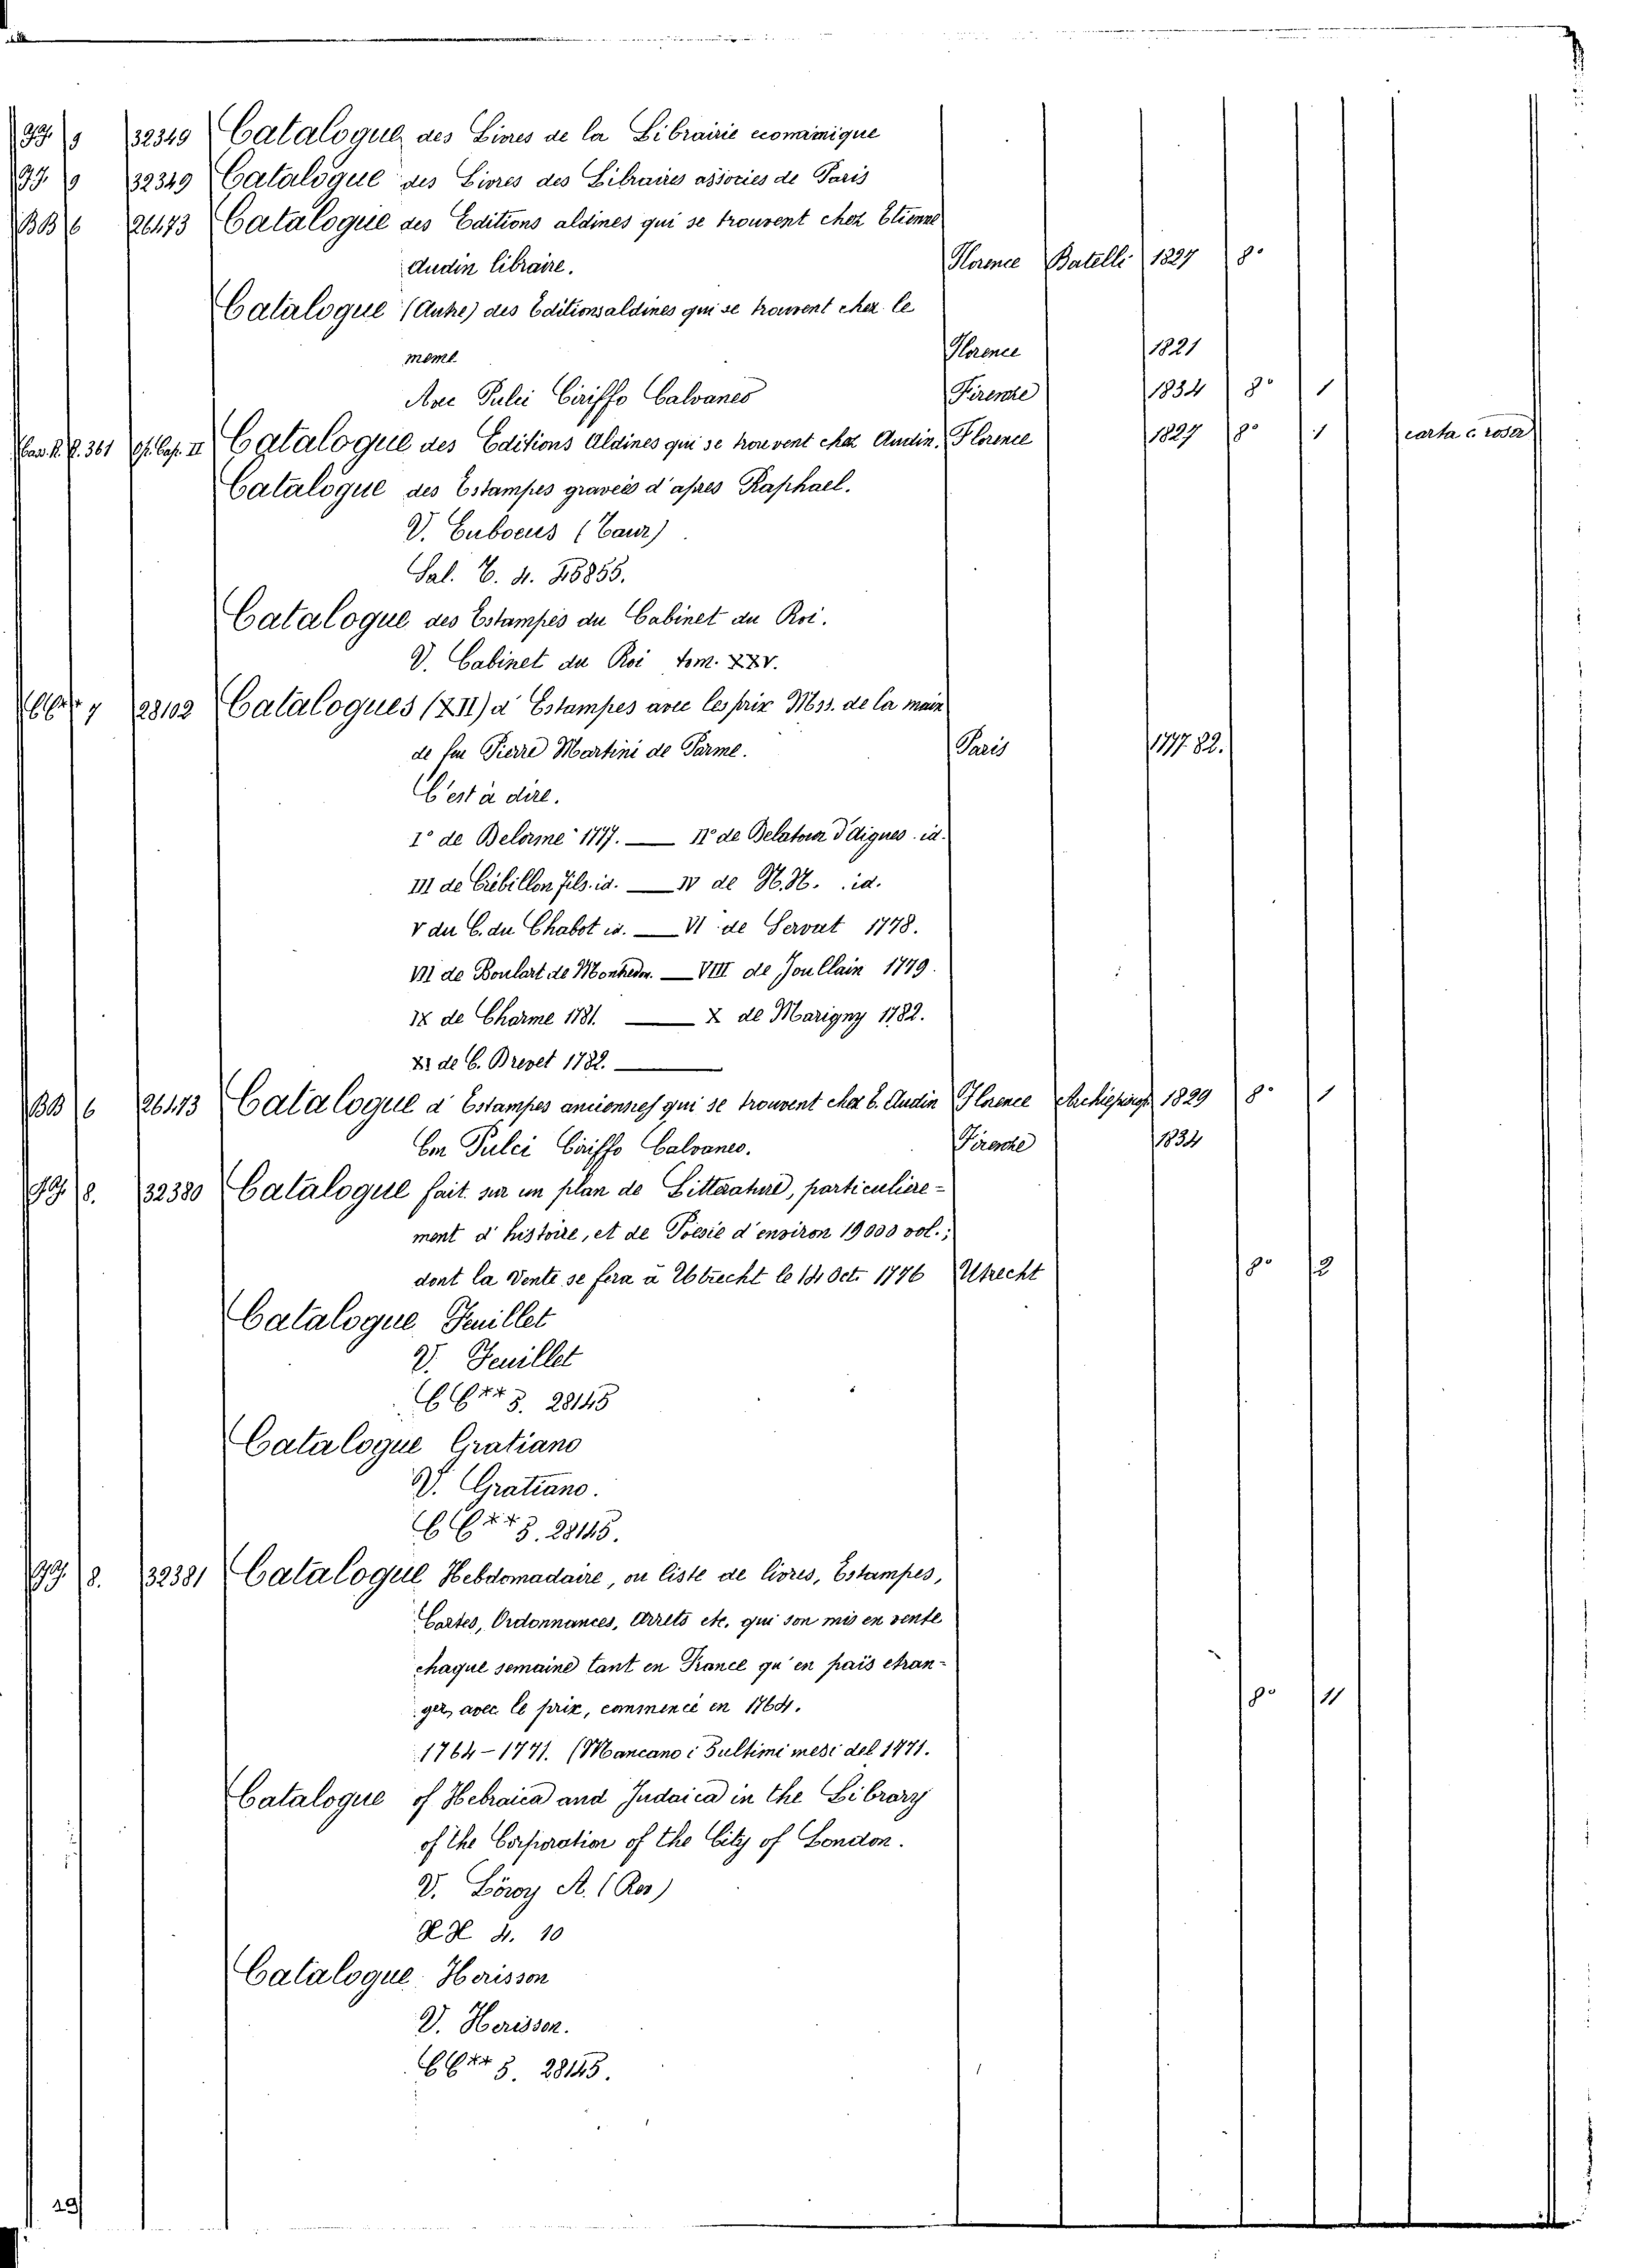 9 32349 Catalogue des Livres de la Librairie economique
9 32349 Catalogue des Livres des Libraires associes de Paris
BB 6 26473 Catalogue des Editions aldines qui se trouvent chez Etienne
Audin libraire. Florence Batelli 1827 8°
Catalogue (Autre) des Editions aldines qui se trouvent chez le
meme Florence 1821
Pulci Ciriffo Calvaneo Firenze 1834 8° 1
361 Catalogue des Editions Aldines qui se trouvent chez Audin. Florence 1827 8° 1 carta c. rosa
Catalogue des Estampes gravées d'apres Raphael.
V. Euboeus (Taur)
Sal.
Catalogue des Estampes du Cabinet du Roi.
V. Cabinet du Roi tom. XXV.
7 28102 Catalogues (XII) d'Estampes avec les prix Mss. de la main
de feu Pierre Martini de Parme. Paris 1777.82.
C'est à dire.
I° de Delorme 1777. — II° de Belatour d'aigues id.
III de Crébillon fils. id. — IV de N.N. id.
V du C. du Chabot id. — VI de Servat 1778.
VII de Boulart de — VIII de Joullain 1779.
IX de Charme 1781. — X de Marigny 1782.
XI de C. Brevet 1782. —
BB 6 26473 Catalogue d'Estampes anciennes qui se trouvent chez E. Audin Florence 1829 8° 1
Con Pulci Ciriffo Calvaneo. Firenze 1834
8. 32380 Catalogue fait sur un plan de Litterature, particuliere-
ment d'histoire, et de Poesie d'environ 19000 vol.;
dont la Vente se fera a Utrecht le 14 Oct. 1776 Utrecht 8° 2
Catalogue Feuillet
V. Feuillet
CC** 3. 28145
Catalogue Gratiano
V. Gratiano.
CC** 3. 28145.
8. 32381 Catalogue Hebdomadaire, ou liste de livres, Estampes,
Cartes, Ordonnances, Arrets etc. qui son mis en vente
chaque semaine tant en France qu'en pais etran-
ger, avec le prix, commencé en 1764. 8° 11
1764-1771. (Mancano i 3 ultimi mesi del 1771.
Catalogue of Hebraica and Judaica in the Library
of the Corporation of the City of London.
V. Löwy A. (Rev)
4. 10
Catalogue Herisson
V. Herisson.
CC** 3. 28145.